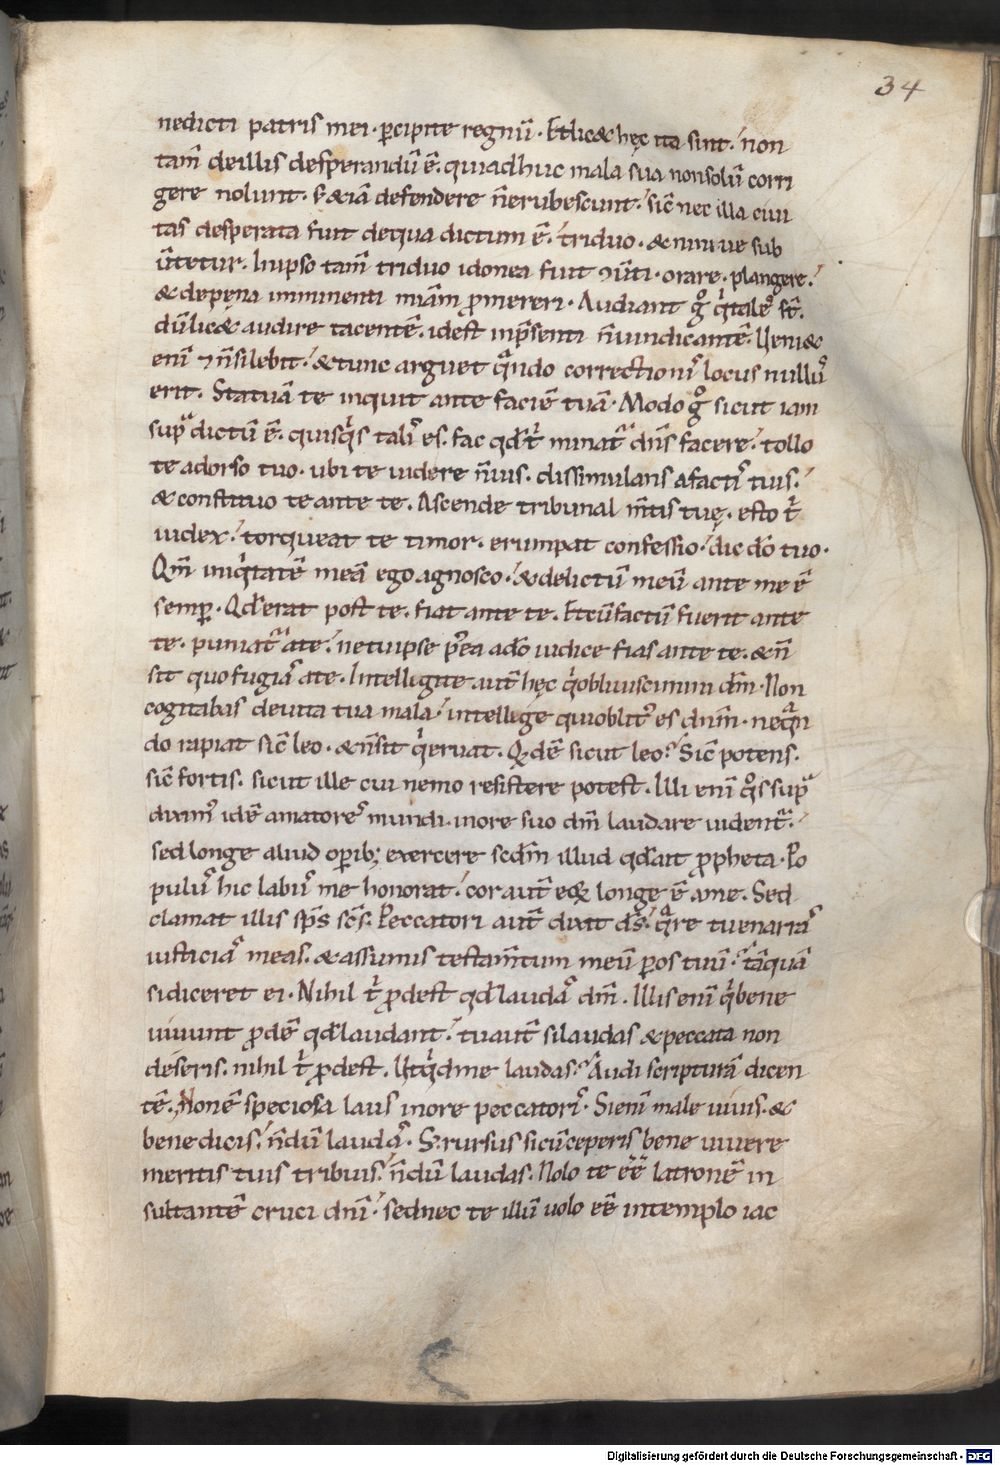 34
nedicti patris mei · p̄cipite regnū · Et lic& hęc ita sint · non
tam̄ de illis desperandū ē · qui adhuc mala sua non solū corri
gere nolunt · s; &iā defendere n̄ erubescunt · sic̄ nec illa ciui
tas desperata fuit de qua dictum ē · triduo · & niniue sub
u̅tetur · In ipso tam̄ triduo idonea fuit ꝯu̅ti · orare · plangere ·
& de pęna imminenti mi̅am ꝓmereri · Audiant g̊ q̇ tales s̅t ·
dū lic& audire tacentē · id est in p̄senti n̄ uindicantē · Ueni&
eni̅ ⁊ n̄ silebit · & tunc arguet qᵃndo correctionis locus nullus
erit · Statuā te inquit ante faciē tuā · Modo g̊ sicut iam
supᵃ dictū ē · quisq̇s talis es · fac qd̄ t̄ minatᵃ dn̄s facere · tollo
te a dorso tuo · ubi te uidere n̄ uis · dissimulans a factis tuis ·
& constituo te ante te · Ascende tribunal m̄tis tuę · esto t̄
iudex · torqueat te timor · erumpat confessio · dic dō tuo ·
Qm̄ iniq̇tatē meā ego agnosco · & delictū meū ante me ē
semp̱ · Qd̄ erat post te · fiat ante te · Et cū factū fuerit ante
te · puniatᵃ a te · ne tu ipse p̄ea a dō iudice fias ante te · & n̄
sit quo fugias a te · Intelligite aut̄ hęc q̇ obliuiscimini dm̄ · Non
cogitabas de uita tua mala · intellige qui oblitus es dnm̄ · ne qᵃn
do rapiat sic̄ leo · & n̄ sit q̇ eruat · Qd̄ ē sicut leo · Sic̄ potens ·
sic̄ fortis · sicut ille cui nemo resistere potest · Illi eni̅ q̊s supᵃ
diximus idē amatores mundi · more suo dm̄ laudare uidentᵃ ·
sed longe aliud op̱ib; exercere scd̄m illud qd̄ ait ꝓpheta · Po
pulus hic labiis me honorat · cor aut̄ eoꝝ longe ē a me · Sed
clamat illis sp̄s sc̄s · Peccatori aut̄ dixit ds̄ · qᵃre tu enarras
iusticias meas · & assumis testam̄tum meū p̱ os tuū · tāquā
si diceret ei · Nihil t̄ ꝓdest qd̄ laudas dm̄ · Illis eni̅ q̇ bene
uiuunt ꝓdē qd̄ laudant · tu aut̄ si laudas & peccata non
deseris · nihil t̄ ꝓdest · Ut q̇d me laudas · Audi scripturā dicen
tē · Non ē speciosa laus in ore peccatoris · Si eni̅ male uiuis · &
bene dicis · n̄dū laudas · S; rursus si cū ceperis bene uiuere
meritis tuis tribuis · n̄dū laudas · Nolo te ēē latronē in
sultantē cruci dn̄i · sed nec te illū uolo ēē in templo iac
Digitalisierung gefördert durch die Deutsche Forschungsgemeinschaft - DFG